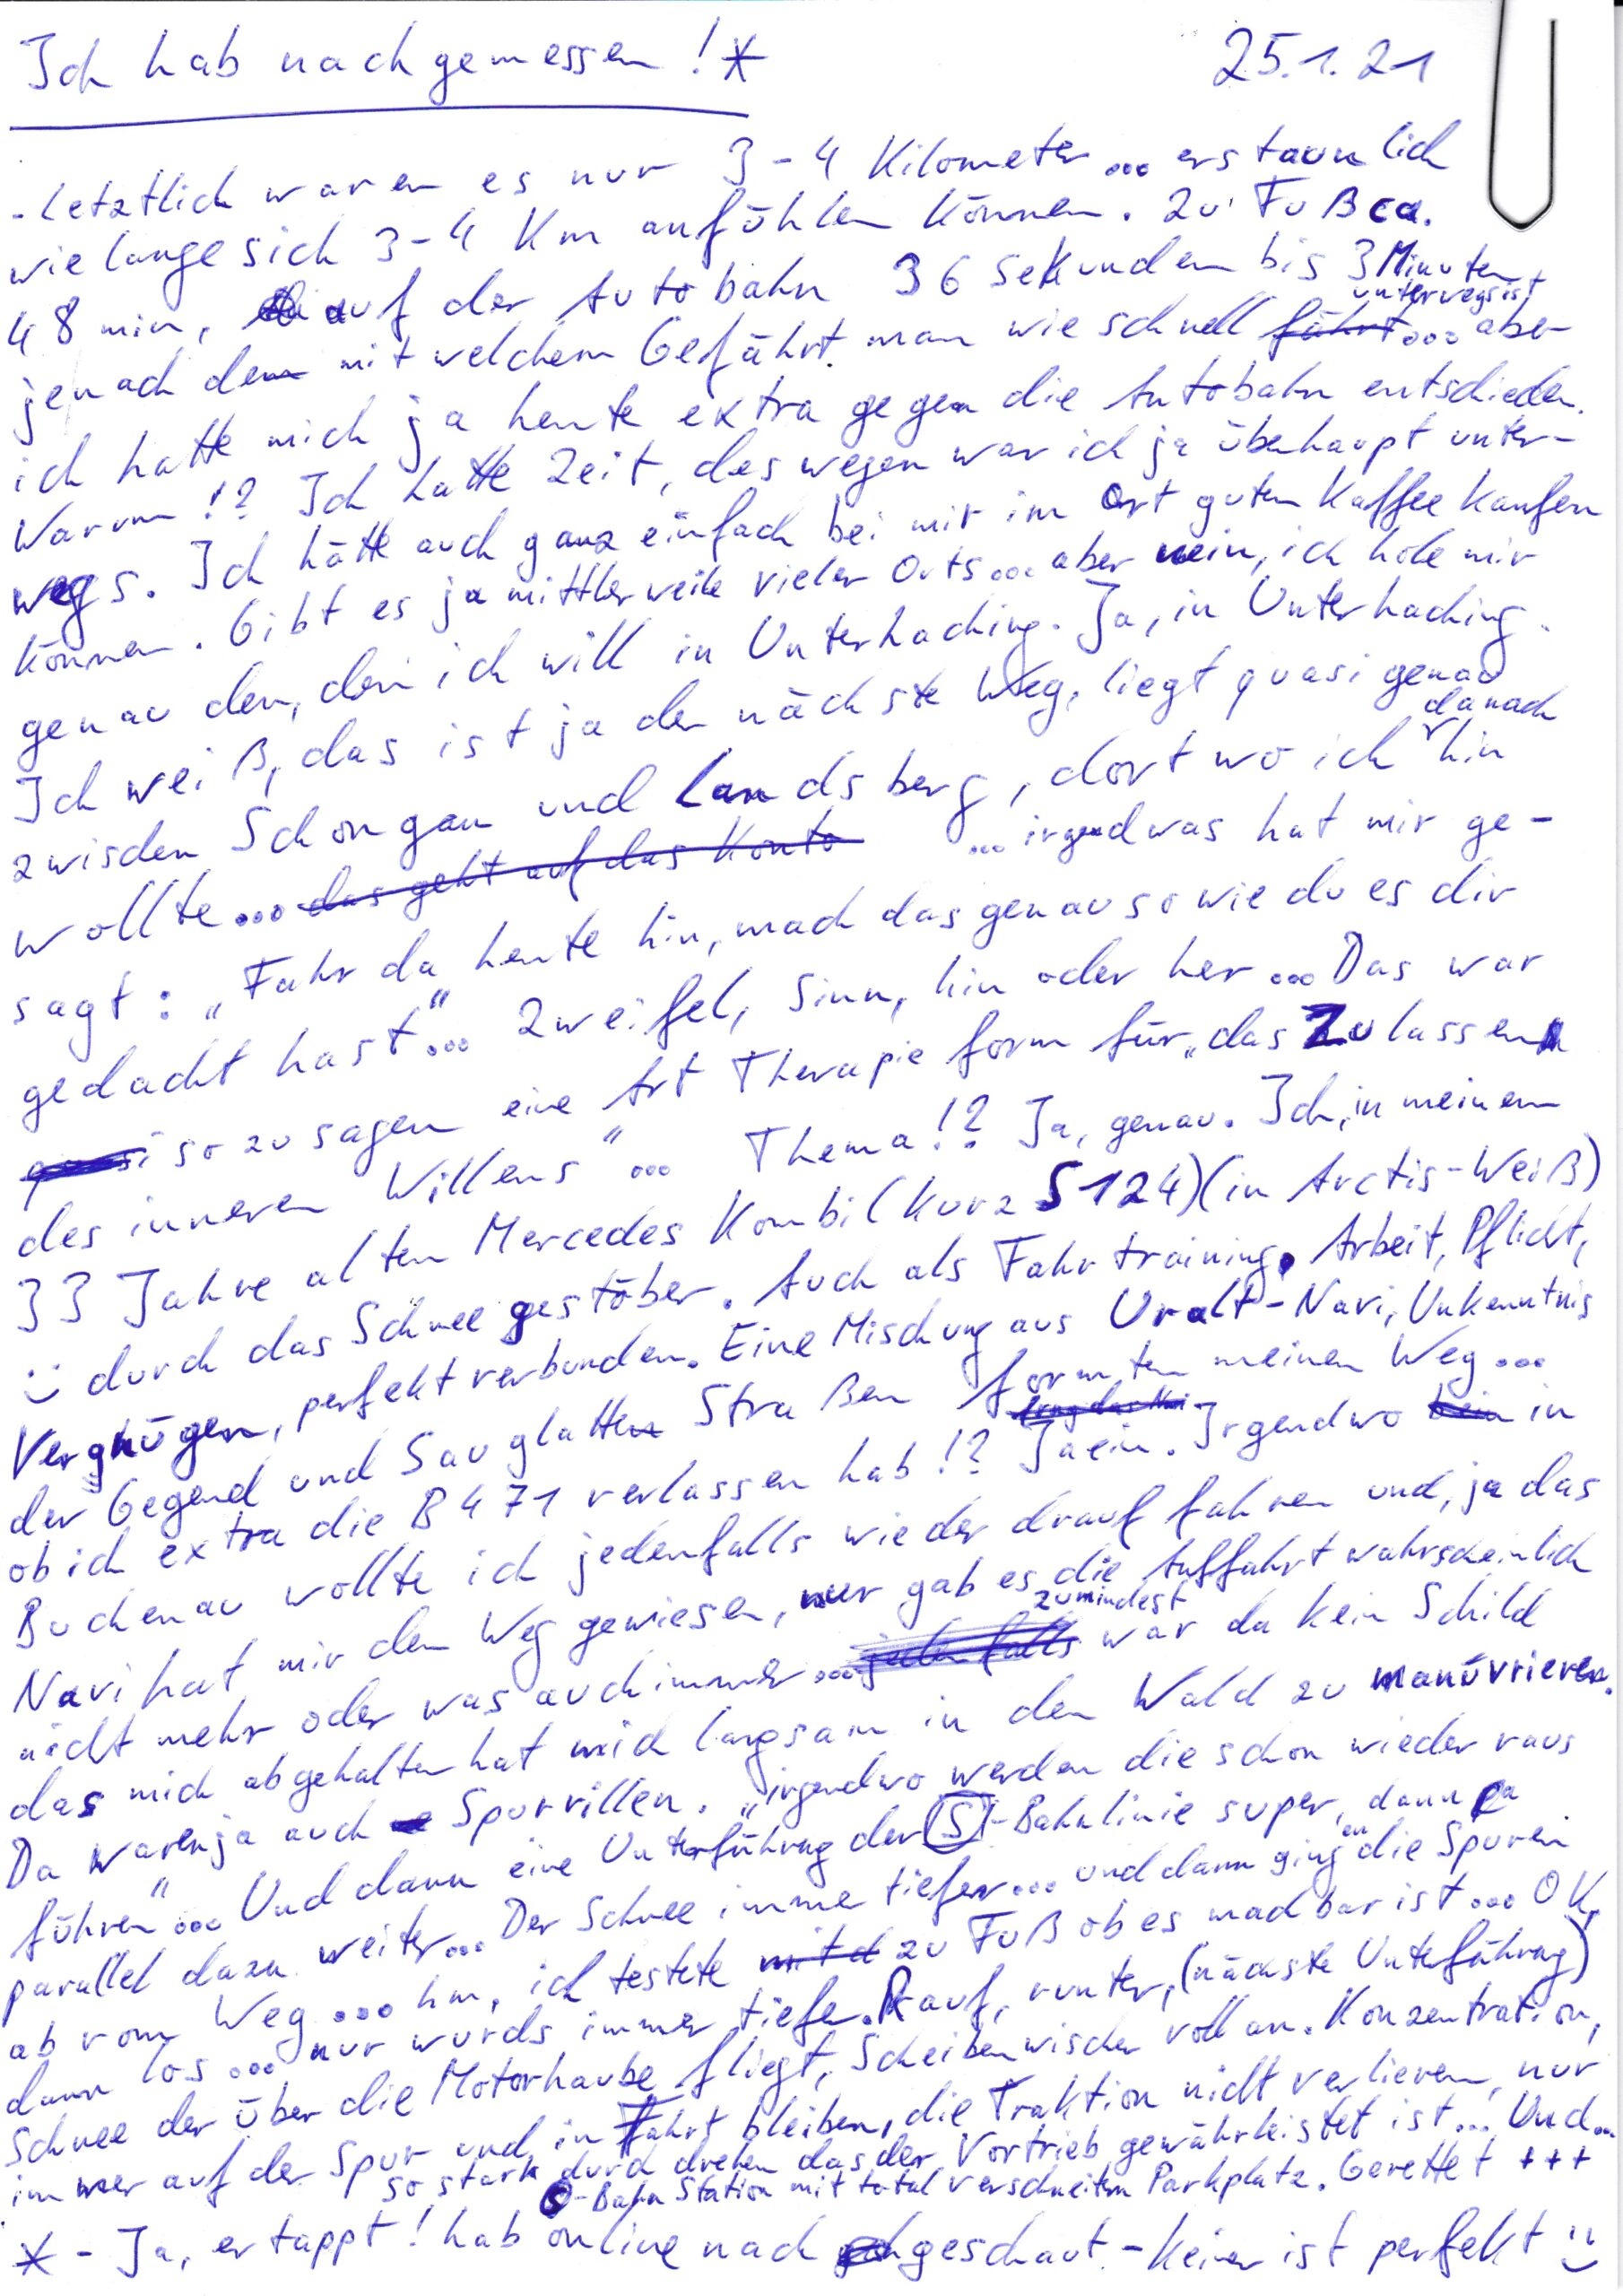 Ich hab nachgemessen!* 25.1.21
- letztlich waren es nur 3-4 Kilometer... erstaunlich
wie lange sich 3-4 Km anfühlen können. Zu Fuß ca.
48 min, auf der Autobahn 36 Sekunden bis 3 Minuten,
je nach dem mit welchem Gefährt man wie schnell ~~fährt~~ unterwegs ist... aber
ich hatte mich ja heute extra gegen die Autobahn entschieden.
Warum!? Ich hatte Zeit, deswegen war ich ja überhaupt unter-
wegs. Ich hätte auch ganz einfach bei mir im Ort guten Kaffee kaufen
können. Gibt es ja mittlerweile vieler Orts... aber nein, ich hole mir
genau den, den ich will in Unterhaching. Ja, in Unterhaching.
Ich weiß, das ist ja der nächste Weg, liegt quasi genau
zwischen Schongau und Landsberg, dort wo ich danach hin
wollte... ~~das geht auf das Konto~~ ... irgendwas hat mir ge-
sagt: „Fahr da heute hin, mach das genau so wie du es dir
gedacht hast"... Zweifel, Sinn, hin oder her... Das war
~~quasi~~ sozusagen eine Art Therapie form für „das Zulassen
des inneren Willens"... Thema!? Ja, genau. Ich, in meinem
33 Jahre alten Mercedes Kombi (kurz S124) (in Arctis-Weiß)
:) durch das Schneegestöber. Auch als Fahrtraining. Arbeit, Pflicht,
Vergnügen, perfekt verbunden. Eine Mischung aus Uralt-Navi, Unkenntnis
der Gegend und Sauglatten Straßen formten meinen Weg...
ob ich extra die B471 verlassen hab!? Jaein. Irgendwo ~~bei~~ in
Buchenau wollte ich jedenfalls wieder drauf fahren und, ja das
Navi hat mir den Weg gewiesen, nur gab es die Auffahrt wahrscheinlich
nicht mehr oder was auch immer... ~~jedenfalls~~ zumindest war da kein Schild
das mich abgehalten hat mich langsam in den Wald zu manövrieren.
Da waren ja auch Spurrillen. „irgendwo werden die schon wieder raus
führen"... Und dann eine Unterführung der S-Bahnlinie super, dann ja
parallel dazu weiter... Der Schnee immer tiefer... und dann gingen die Spuren
ab vom Weg... hm, ich testete ~~mit d~~ zu Fuß ob es machbar ist... OK,
dann los... nur wurds immer tiefer. Rauf, runter, (nächste Unterführung)
Schnee der über die Motorhaube fliegt, Scheibenwischer voll an. Konzentration,
immer auf der Spur und in Fahrt bleiben, die Traktion nicht verlieren, nur
so stark durch drehen das der Vortrieb gewährleistet ist... Und...
S-Bahn Station mit total verschneitem Parkplatz. Gerettet +++
* - Ja, ertappt! hab online nach geschaut - keiner ist perfekt :)